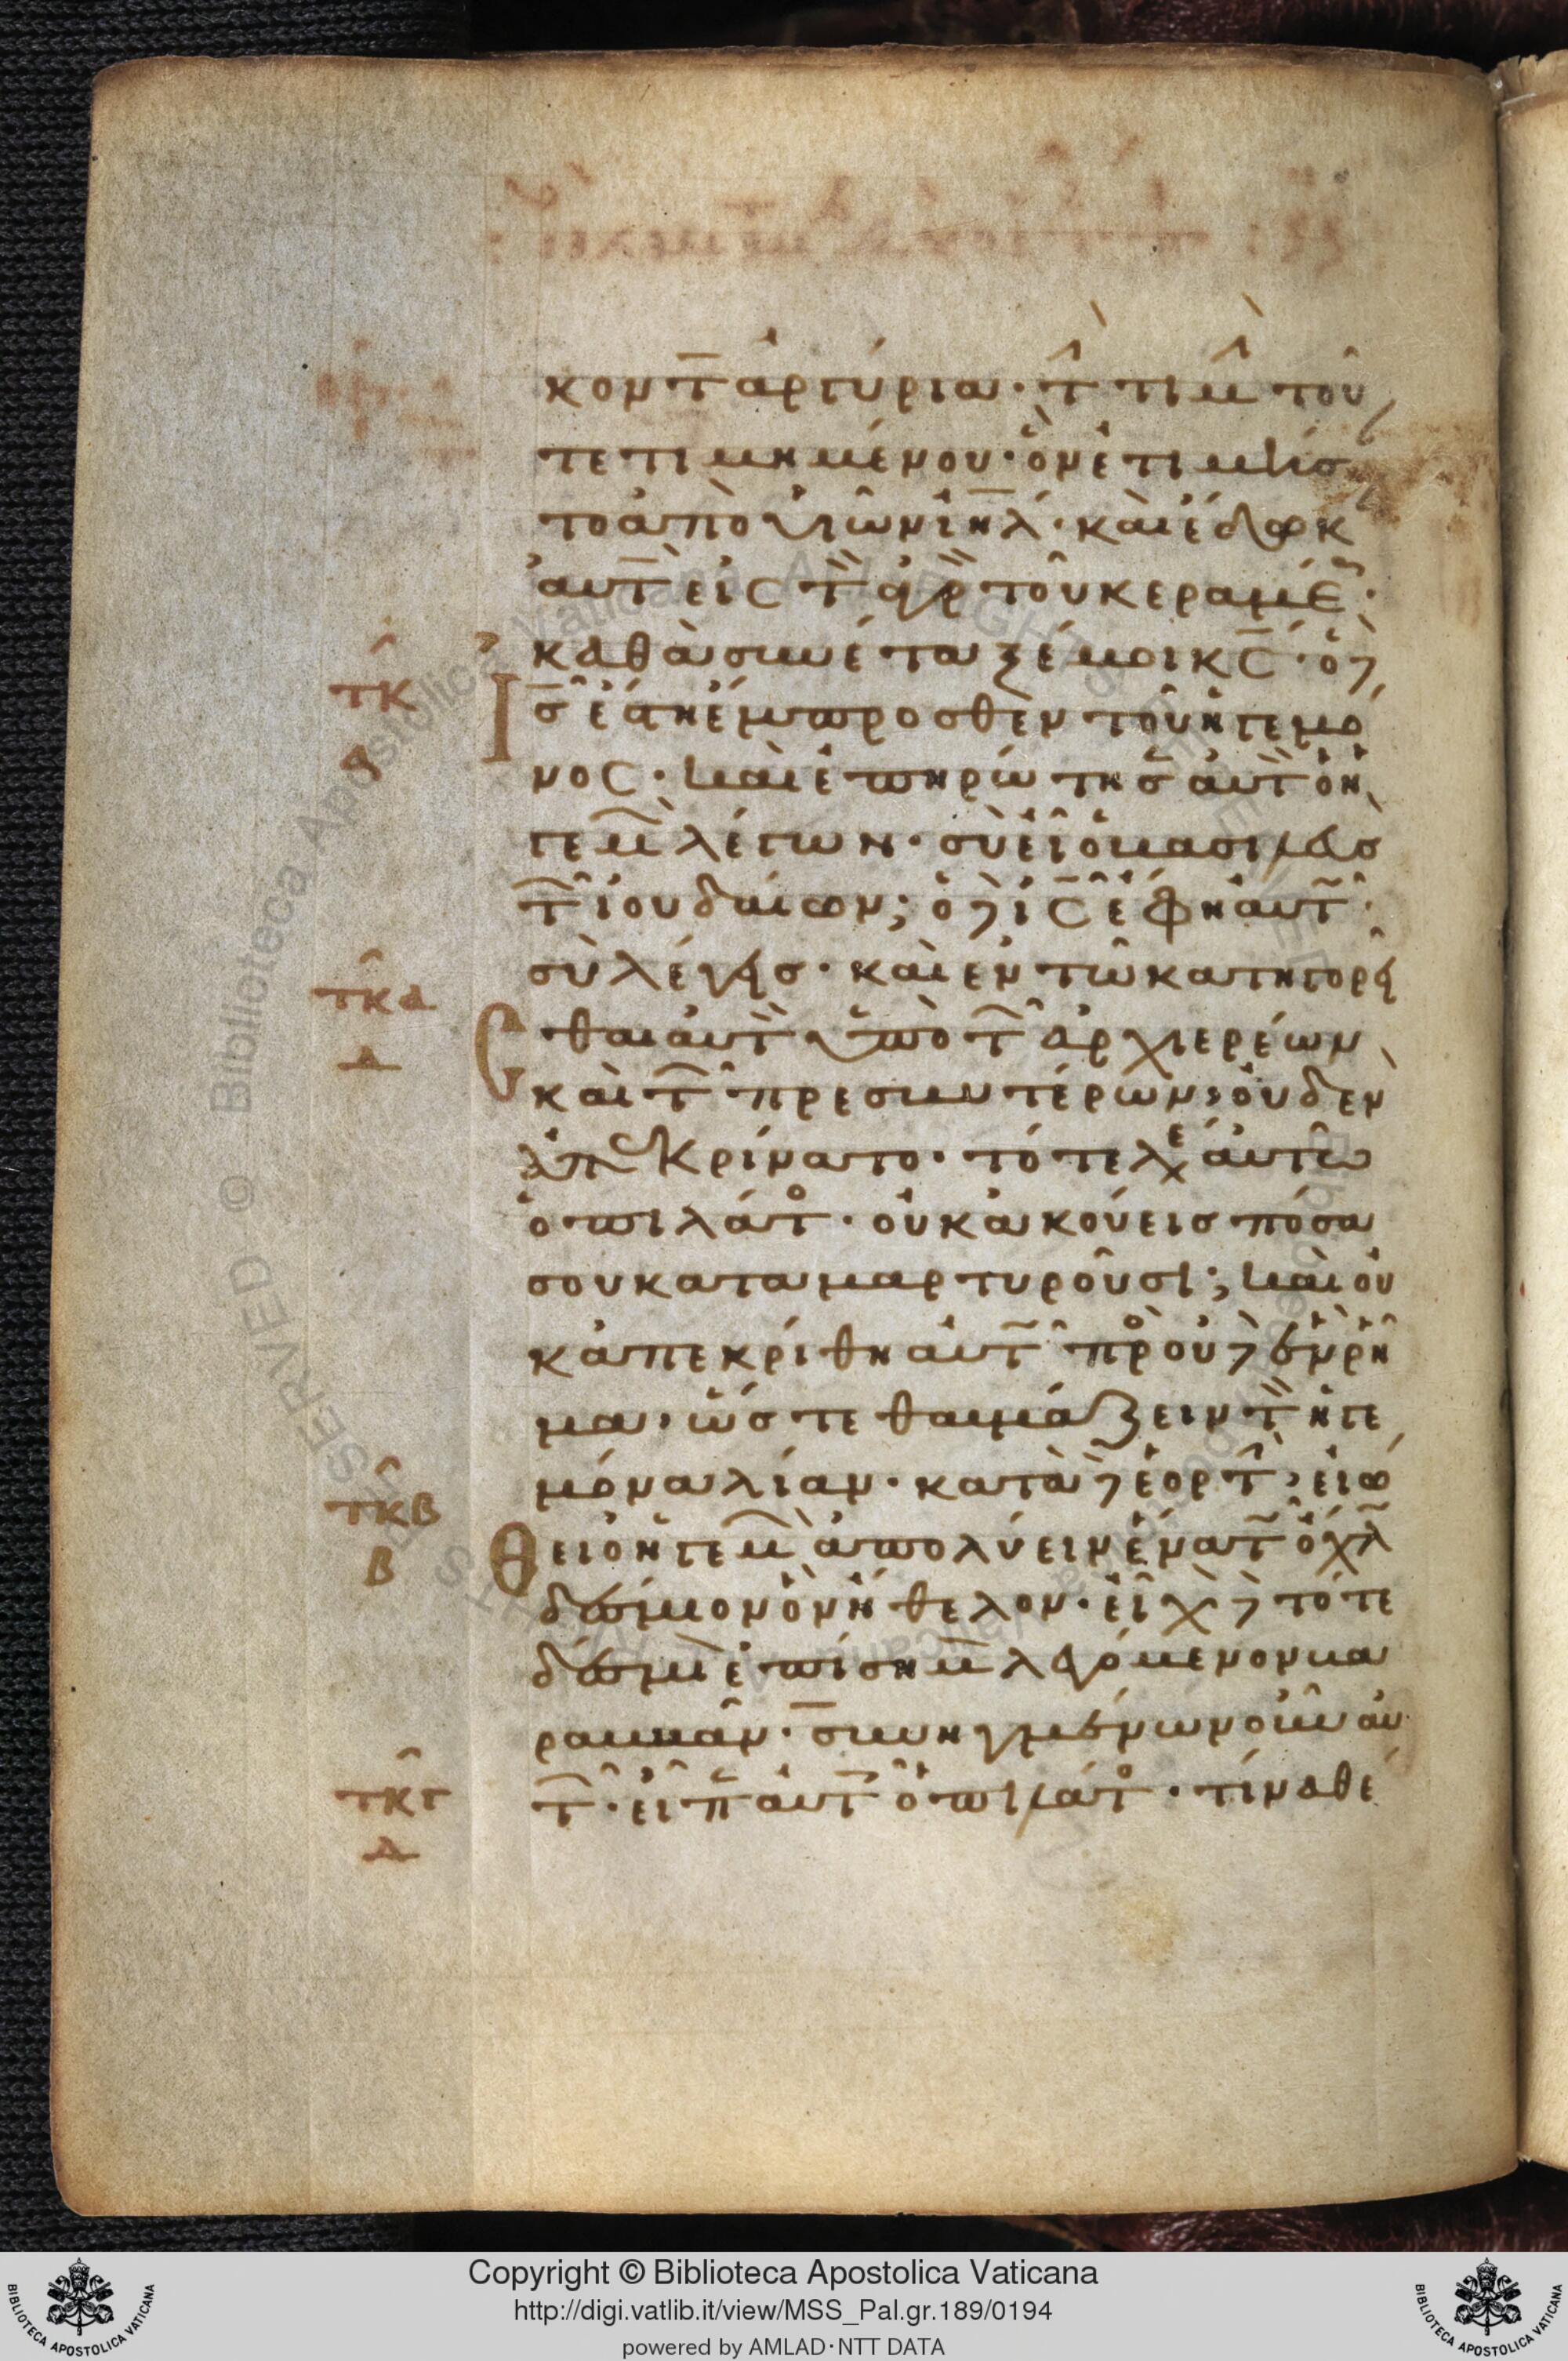 κοντ̅ ἀργύρια· τ̂ τιμ̂ τοῦ
τετιμημένου· ὃν ἐτιμήσ
το ἀπὸ υἱῶν ιη̅λ· καὶ ἔδωκ
αὐτ̅ εἰς τ̏ ἀγρ̏ τοῦ κεραμέ·
τκ καθὰ συνέταξέ μοι κς̅· ὁ δ
α Ισ̅ ἐστη ἔμπροσθεν τοῦ ἡγεμό
νος· καὶ ἐπηρώτησ αὐτ ὁ ἡ
γεμ λέγων· σὺ εἶ ὁ βασιλεὺσ
τ̅ ἰουδαίων; ὁ δ ις̅ ἔφη αὐτ·
σὺ λέγεισ· καὶ ἐν τῶ κατηγορεῖ
τκα
δ Σθαι αὐτ ὑπὸ τ̅ ἀρχιερέων
καὶ τ̅ πρεσβυτέρων, οὐδεν
ἀπεκρίνατο· τότε λέ αὐτῶ
ὁ πιλάτο· οὐκ ἀκούεισ πόσα
σου καταμαρτυροῦσι; καὶ οὐ
κ ἀπεκρίθη αὐτ πρ οὐδ ἓν ρῆ
μα, ὥστε θαυμάζειν τ̏ ἡγε
μόνα λίαν· κατὰ δ ἑορτ, εἰώ
τκβ
β Θει ὁ ἡγεμ ἀπολύειν ἕνα τ ὄχλ
δέσμιον ὃν ἤθελον· εἶχ δ τότε
δέσμι ἐπίσημ λεγόμενον βα
ραββᾶν· συνηγμένων οὖν αὐ
τκγ τ̅· εἶπ αὐτ ὁ πιλάτο· τίνα θέ
δ
Copyright © Biblioteca Apostolica Vaticana
http://digi.vatlib.it/view/MSS_Pal.gr.189/0194
powered by AMLAD·NTT DATA
BIBLIOTECA APOSTOLICA VATICANA
BIBLIOTECA APOSTOLICA VATICANA